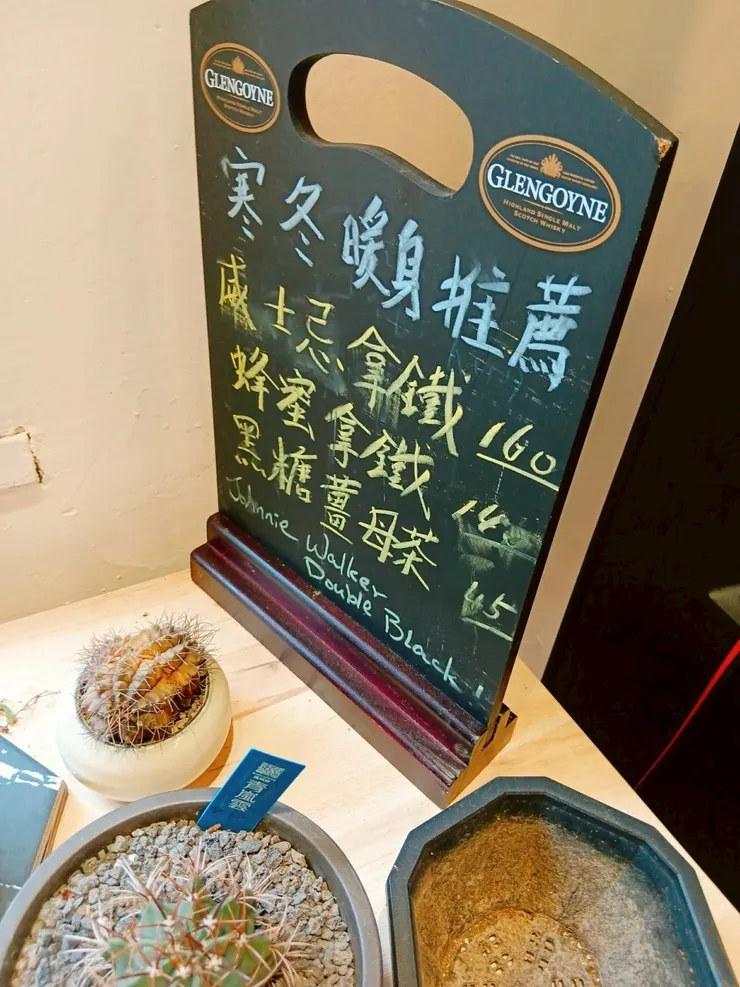 GLENGOYNE
HIGHLAND SINGLE MALT
SCOTCH WHISKY
GLENGOYNE
HIGHLAND SINGLE MALT
SCOTCH WHISKY
寒冬暖身推薦
威士忌拿鐵 160
蜂蜜拿鐵
黑糖薑母茶 45
Johnnie Walker
Double Black